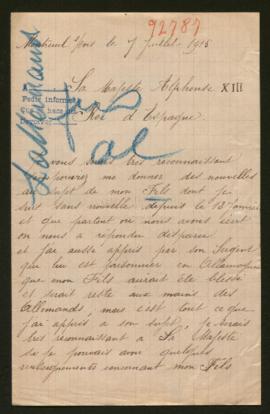 92787
Montreuil s/Bois le 7 Juillet 1915
Sa Majesté Alphonse XIII
Roi d'Espagne
Pedir informes
Lallemand
vous serais très reconnaissant
pouriez me donner des nouvelles
au sujet de mon Fils dont je
suis sans nouvelle depuis le 13 Janvier
et que partout ou nous avons écrit
on nous a répondu disparu
et j'ai aussi appris par son Sergent
que lui est prisonnier en Allemagne
que mon Fils aurait été blessé
et serait resté aux mains des
Allemands, mais c'est tout ce que
j'ai appris a son sujet, je serais
très reconnaissant à Sa Majesté
si je pouvais avoir quelques
renseignements concernant mon Fils